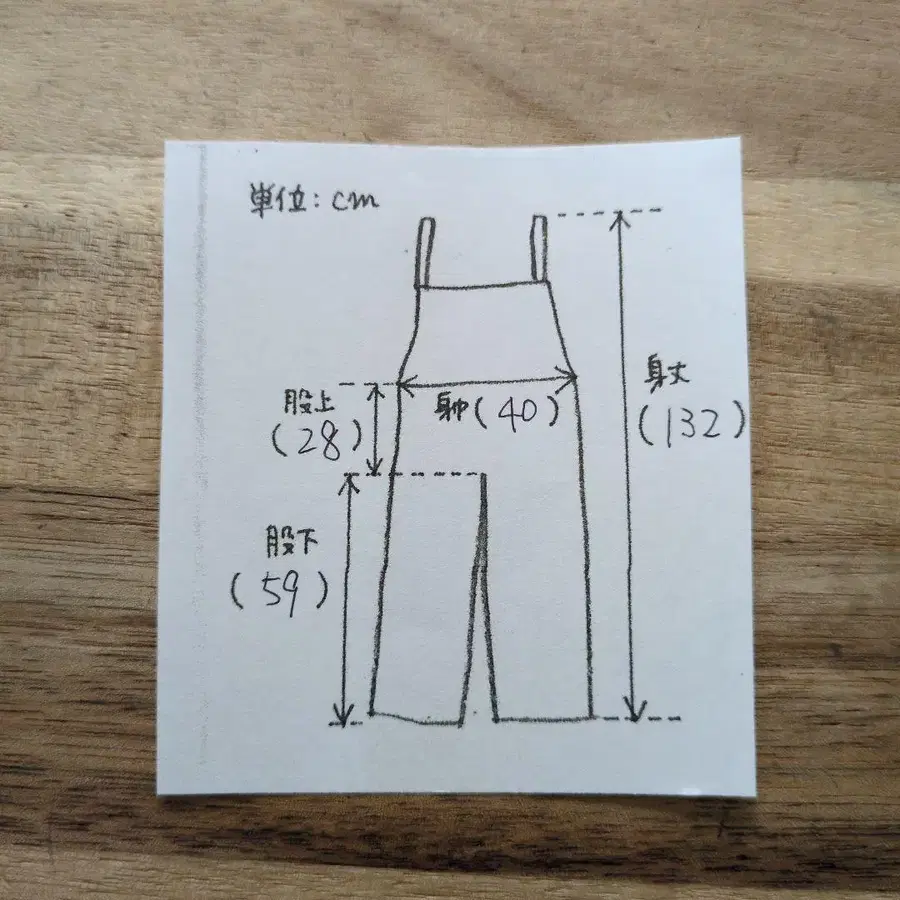 単位:cm
身丈
(132)
股上
(28)
身巾(40)
股下
(59)